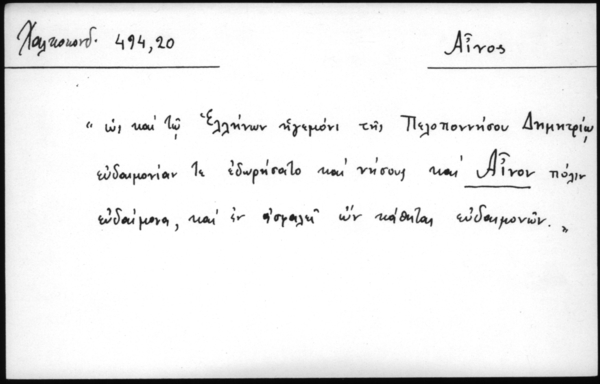 Χαλκοκονδ. 494,20
Αἶνος
" ὡς καὶ τῷ Ἑλλήνων ἡγεμόνι τῆς Πελοποννήσου Δημητρίῳ
εὐδαιμονίαν τε ἐδωρήσατο καὶ νήσους καὶ Αἶνον πόλιν
εὐδαίμονα, καὶ ἐν ἀσφαλεῖ ὢν κάθηται εὐδαιμονῶν. "